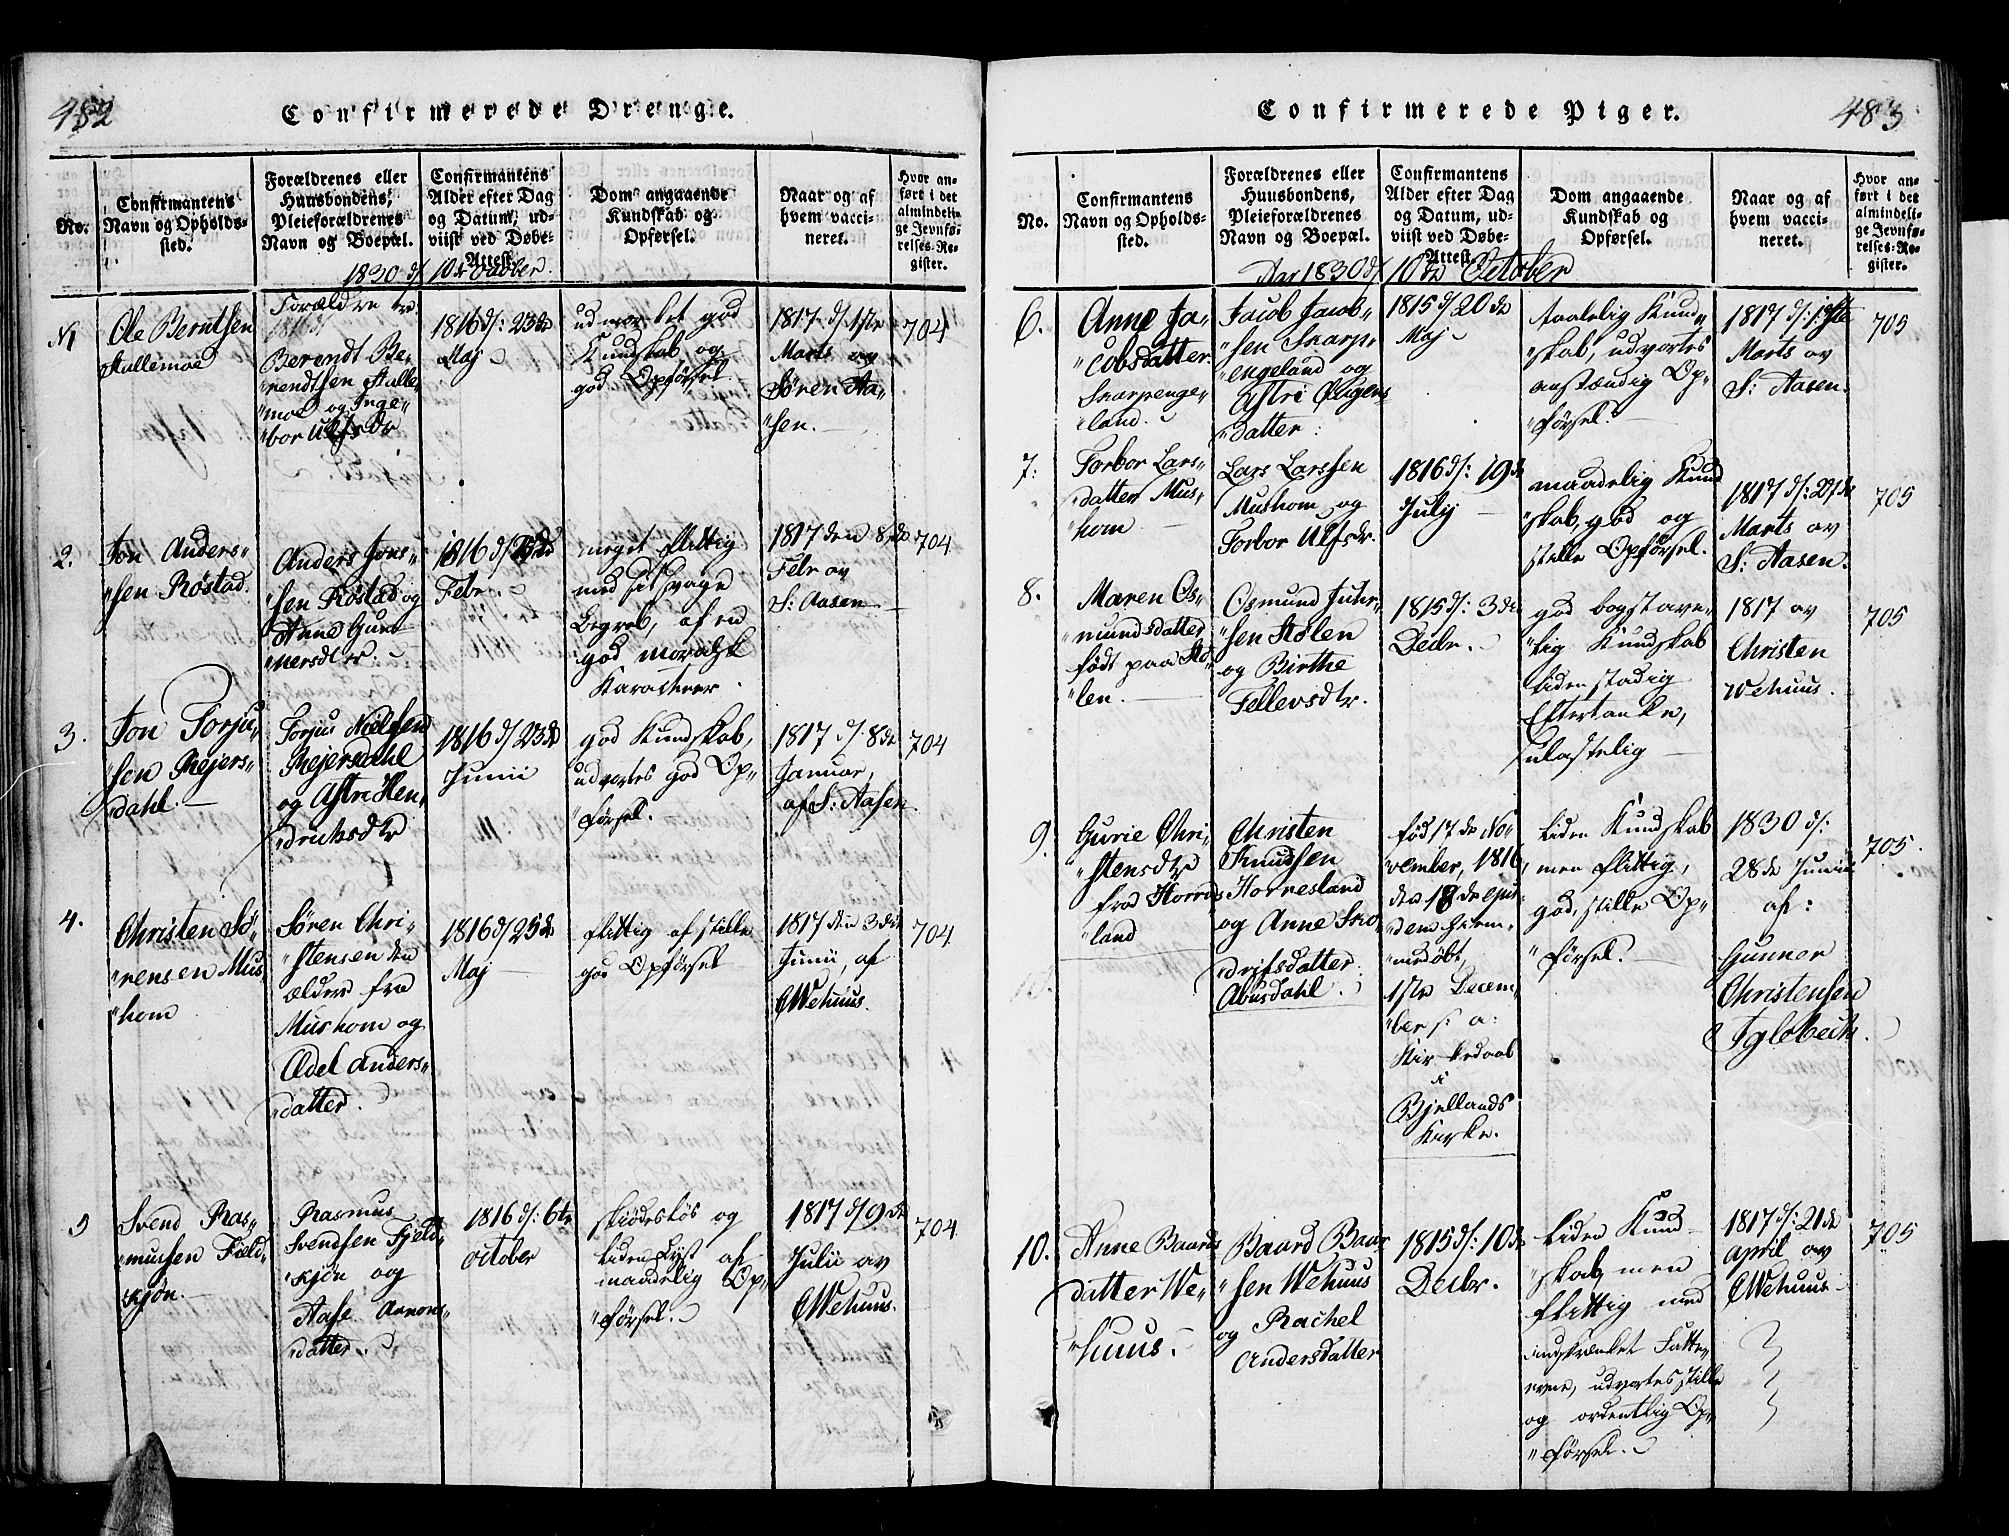 482
Confirmerede Drenge.
No.
Confirmantens
Navn og Opholds-
sted.
Forældrenes eller
Huusbondens,
Pleieforældrenes
Navn og Boepæl.
Confirmantens
Alder efter Dag
og Datum, ud-
viist ved Døbe-
Attest.
Dom angaaende
Kundskab og
Opførsel.
Naar og af
hvem vacci-
neret.
Hvor an-
ført i det
almindeli-
ge Jevnfø-
relses-Re-
gister.
1830 d/ 10de October.
N1
Ole Berntsen
Stallemoe
Forældre er
Berendt Be-
"rendtsen Stalle
"moe og Inge-
"bor Ulfsdr
1816 d/: 23de
Maj
udmærket god
Kundskab og
god Opførsel.
1817 d/ 1ste
Marts av
Søren Aa-
sen.
704
2.
Jon Anders-
"sen Røstad.
Anders Jons-
"sen Røstad og
Anne Gun-
"nersdtr.
1816 d/ 23de
Febr.
meget flittig
med et svage
Begreb, af en
god moralsk
Karacteer.
1817 den 8de
Febr av
S: Aasen
704
3.
Jon Torju-
"sen Rejers-
dahl.
Torjus Nielsen
Rejersdahl
og Astri Hen-
drichsdtr
1816 d/ 23de
Junii
god Kundskab,
udvortes god Op-
"førsel.
1817 d/: 8de
Januar,
af S: Aasen.
704
4.
Christen Sö-
"rensen Mus
"hom
Søren Chri-
"stensen den
ældre fra
Mushom og
Ædel Anders-
datter.
1816 d/ 25de
Maj
flittig af stille
god Opførsel
1817 den 3die
Junii, af
CWehuus.
704
5
Svend Ras-
mussen Field-
kjøn.
Rasmus
Svendsen Fjeld-
"kjøn og
Aase Aanons-
datter.
1816 d/: 6te
October
skiødesløs og
liden Lyst af
maadelig Op-
"førsel.
1817 d/ 9de
Julii av
CWehuus.
704
483
Confirmerede Piger.
No.
Confirmantens
Navn og Opholds-
sted.
Forældrenes eller
Huusbondens,
Pleieforældrenes
Navn og Boepæl.
Confirmantens
Alder efter Dag
og Datum, ud-
viist ved Døbe-
Attest.
Dom angaaende
Kundskab og
Opførsel.
Naar og af
hvem vacci-
neret.
Hvor an-
ført i det
almindeli-
ge Jevnfø-
relses-Re-
gister.
Aar 1830 d/ 10de October
6.
Anne Ja-
"cobsdatter
Skarpenge-
"land.
Jacob Jacob-
"sen Skarp-
"engeland og
Astri
datter.
1815 d/ 20de
Maj
taalelig Kund-
"skab, udvortes
anstændig Op-
"førsel.
1817 d/: 1ste
Marts av
S: Aasen.
705
7.
Torbor Lars-
datter Mus-
"hom
Lars Larssen
Mushom og
Torbor Ulfsdr.
1816 d/: 19de
July
maadelig Kund
"skab, god og
stille Opførsel.
1817 d/: 27de
Marts av
S: Aasen.
705
8.
Maren Os-
"mundsdatter
født paa Stø-
"len.
Osmund
"sen Stølen
og Birthe
Tellevsdtr.
1815 d/: 3die
Decbr.
god bogstave-
"lig Kundskab
liden stadig
Eftertanke,
ulastelig
1817 av
Christen
Wehuus.
705
9.
Gurie Chri-
"stensdtr
fra Horres
"land
Christen
Knudsen
Horresland
og Anne
datter
Abusdahl.
fød 17de No-
"vember, 1816,
den 18de ejus-
dem hjem-
"medøbt,
1ste Decem-
"ber s: a:
Kirkedaab
i
Bjellands
Kirke.
liden Kundskab
men flittig,
god, stille Op-
"førsel.
1830 d/:
28de Junii
af:
Gunner
Christensen
Iglebech.
705.
10.
Anne Baards
datter We-
"huus.
Baard Baar
"sen Wehuus
og Rachel
Andersdatter
1815 d/: 10de
Decbr.
liden Kund-
"skab, men
flittig med
indskrænket Fatte-
evne, udvortes stille
og ordentlig Op-
"førsel.
1817 d/: 21de
april av
CWehuus
705